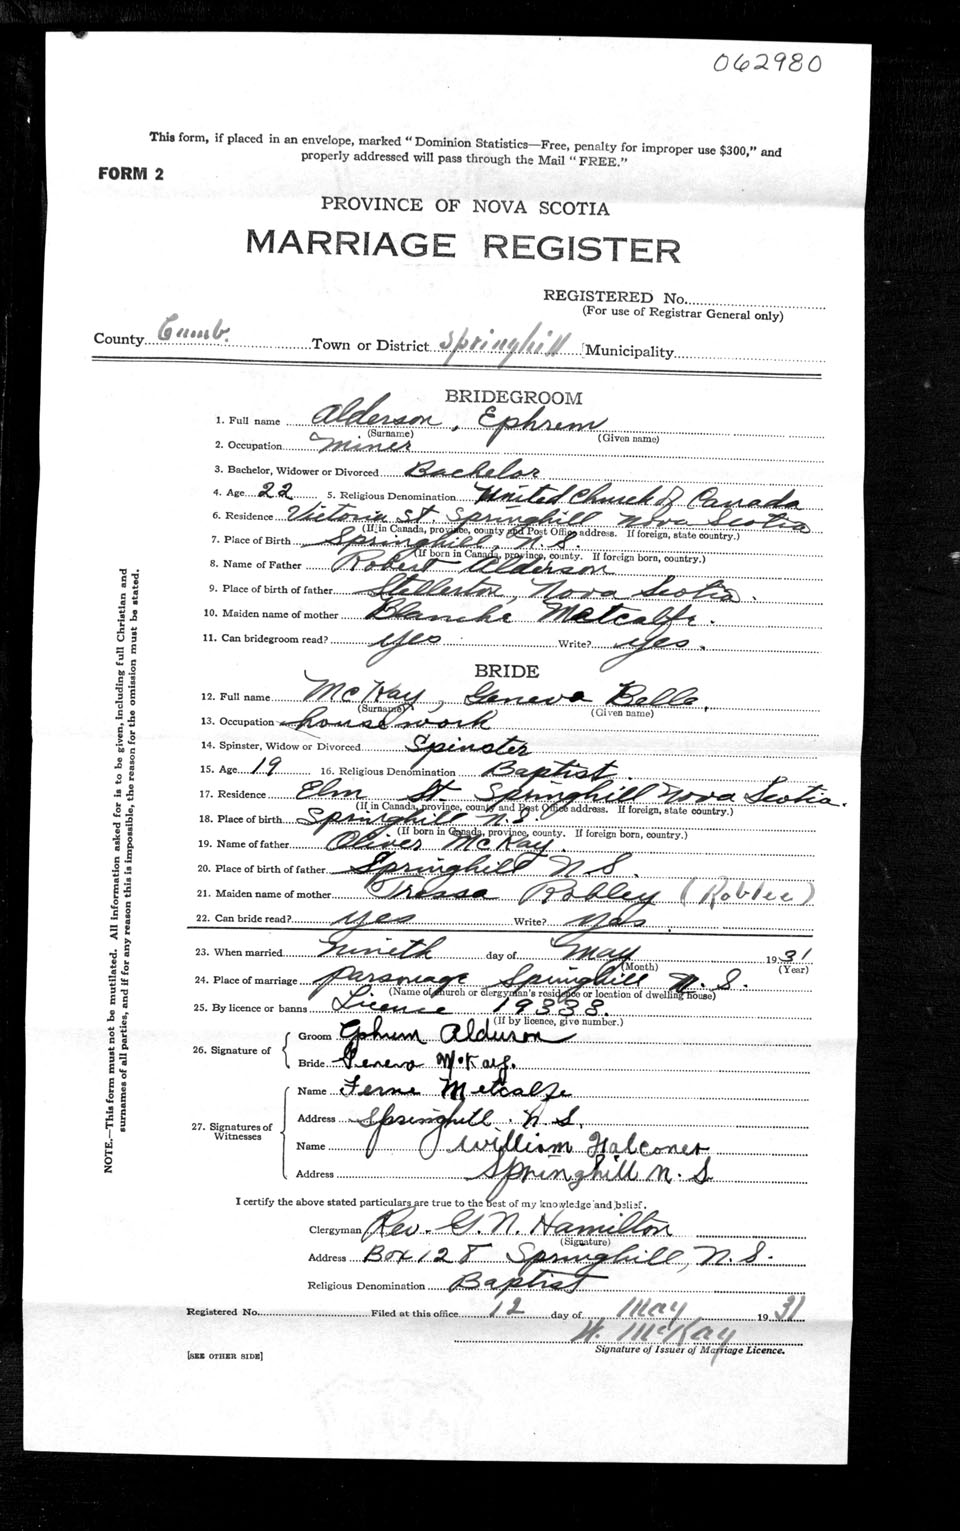 062980
This form, if placed in an envelope, marked "Dominion Statistics—Free, penalty for improper use $300," and
properly addressed will pass through the Mail "FREE."
FORM 2
PROVINCE OF NOVA SCOTIA
MARRIAGE REGISTER
REGISTERED No.
(For use of Registrar General only)
County Cumb. Town or District Springhill Municipality
BRIDEGROOM
1. Full name Alderson, Ephrem
(Surname) (Given name)
2. Occupation Miner
3. Bachelor, Widower or Divorced Bachelor
4. Age 22 5. Religious Denomination United Church of Canada
6. Residence Victoria St Springhill Nova Scotia
(If in Canada, province, county and Post Office address. If foreign, state country.)
7. Place of Birth Springhill, N.S.
(If born in Canada, province, county. If foreign born, country.)
8. Name of Father Robert Alderson
9. Place of birth of father Stellerton, Nova Scotia.
10. Maiden name of mother Blanche Metcalfe.
11. Can bridegroom read? yes Write? yes.
BRIDE
12. Full name McKay, Geneva Belle,
(Surname) (Given name)
13. Occupation housework
14. Spinster, Widow or Divorced Spinster
15. Age 19 16. Religious Denomination Baptist.
17. Residence Elm St. Springhill Nova Scotia.
(If in Canada, province, county and Post Office address. If foreign, state country.)
18. Place of birth Springhill N.S.
(If born in Canada, province, county. If foreign born, country.)
19. Name of father Oliver McKay.
20. Place of birth of father Springhill N S.
21. Maiden name of mother Tressa Robley (Roblee)
22. Can bride read? yes Write? yes.
23. When married nineth day of May 1931
(Month) (Year)
24. Place of marriage parsonage Springhill N.S.
(Name of church or clergyman's residence or location of dwelling house)
25. By licence or banns Licence 19338.
(If by licence, give number.)
26. Signature of
Groom Ephrem Alderson
Bride Geneva McKay.
27. Signatures of Witnesses
Name Ferne Metcalfe
Address Springhill N.S.
Name William Falconer
Address Springhill N.S
I certify the above stated particulars are true to the best of my knowledge and belief.
Clergyman Rev. G. N. Hamilton
(Signature)
Address Box 128 Springhill, N.S.
Religious Denomination Baptist
Registered No. Filed at this office 12 day of May 1931
W. McKay
Signature of Issuer of Marriage Licence.
[SEE OTHER SIDE]
NOTE.—This form must not be mutilated. All information asked for is to be given, including full Christian and
surnames of all parties, and if for any reason this is impossible, the reason for the omission must be stated.